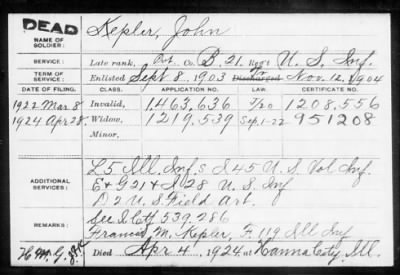 DEAD
NAME OF SOLDIER: Kepler, John
SERVICE: Late rank, Pvt. Co. B, 21, Reg't U. S. Inf.
TERM OF SERVICE: Enlisted Sept 8, 1903 Discharged Nov. 12, 1904
DATE OF FILING. CLASS. APPLICATION NO. LAW. CERTIFICATE NO.
1922 Mar 8 Invalid, 1,463,636 1208,556
1924 Apr 28. Widow, 1219,539 Sep 1-22 951208
Minor,
ADDITIONAL SERVICES: L 5 Ill. Inf. & I 45 U. S. Vol Inf.
E & G 21 & I 28 U. S. Inf
D 2 U. S. Field Art.
REMARKS: 539,286
Francis M. Kepler, F. 119 Ill Inf
Died Apr 4, 1924, at Hanna City, Ill.